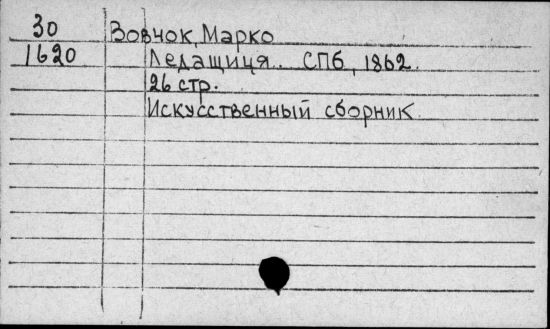 30 Вовчок, Марко
1620 Ледащиця. СПб, 1862.
26 стр.
Искусственный сборник